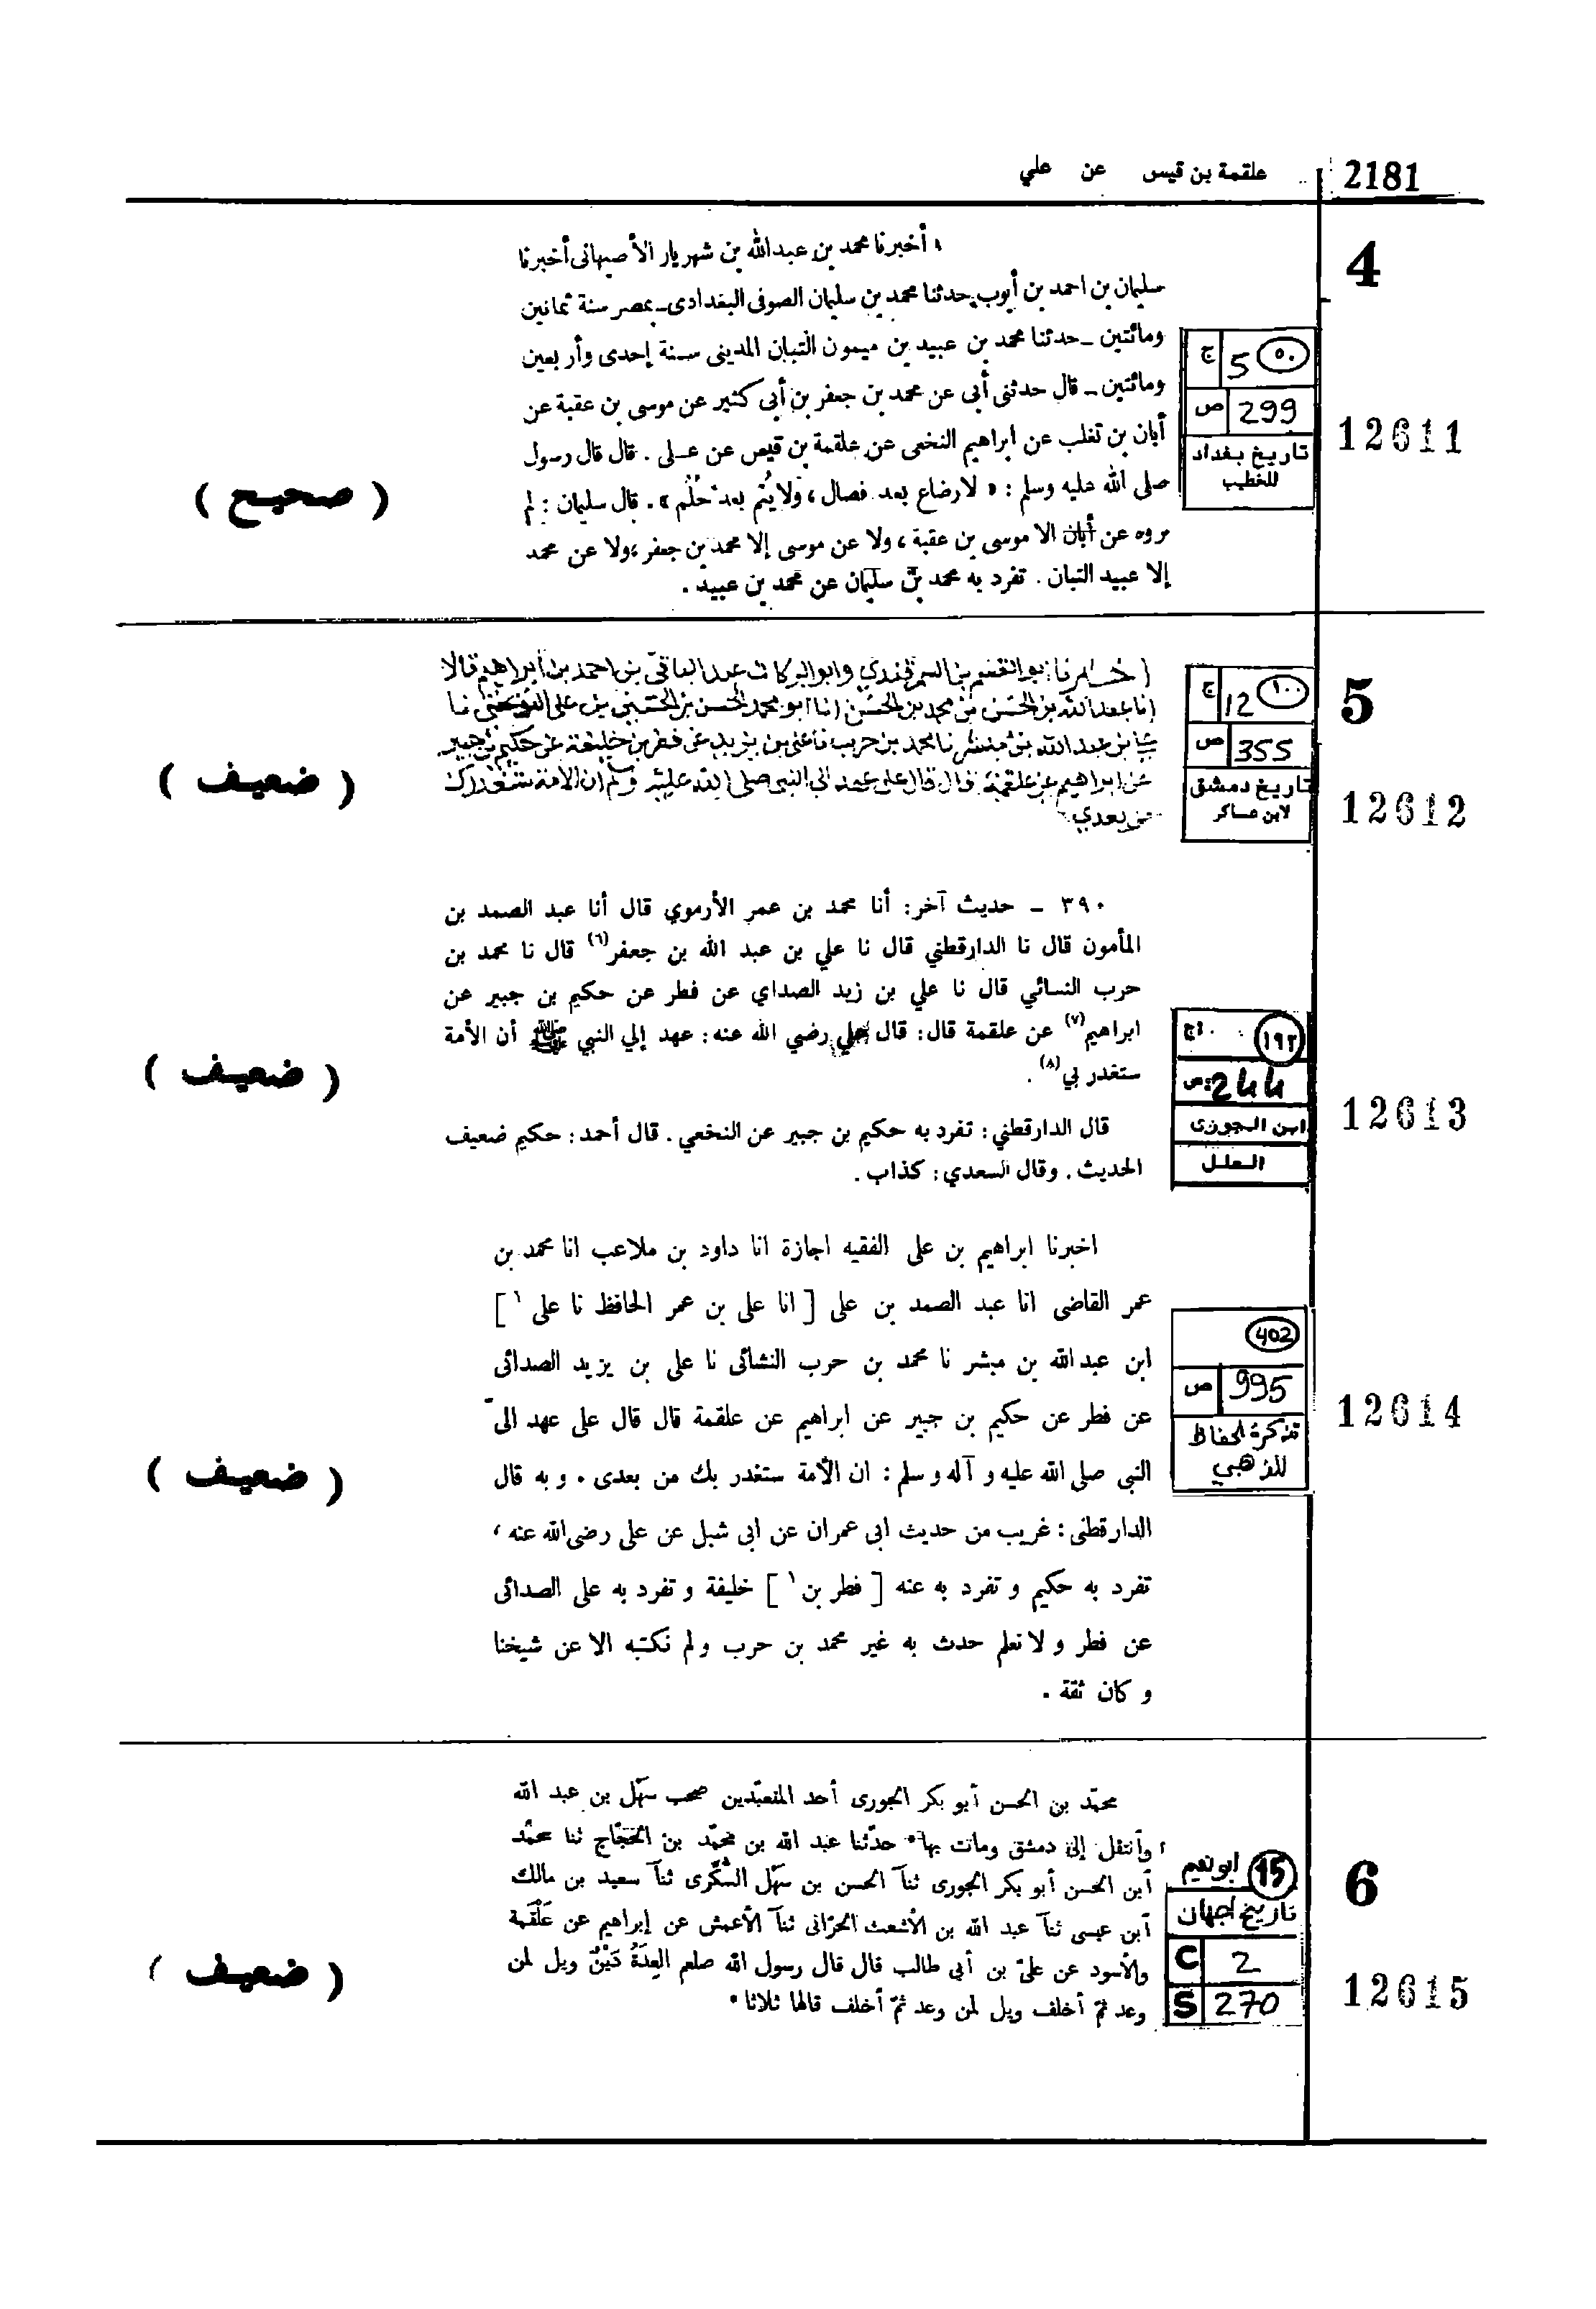 2181 علقمة بن قيس عن علي
4
« أخبرنا محمد بن عبدالله بن شهريار الأصبهانى أخبرنا
سليمان بن احمد بن أيوب حدثنا محمد بن سليمان الصوفى البغدادى ـ بمصر سنة ثمانين
ومائتين ـ حدثنا محمد بن عبيد بن ميمون التبان المدينى سنة إحدى وأربعين
ومائتين ـ قال حدثنى أبى عن محمد بن جعفر بن أبى كثير عن موسى بن عقبة عن
أبان بن تغلب عن ابراهيم النخعى عن علقمة بن قيس عن عـلى . قال قال رسول
صلى الله عليه وسلم : « لارضاع بعد فصال ، ولا يُتم بعد حُلُم » . قال سليمان : لم
يروه عن أبان الا موسى بن عقبة ، ولا عن موسى إلا محمد بن جعفر ، ولا عن محمد
إلا عبيد التبان . تفرد به محمد بن سليمان عن محمد بن عبيد .
٥٠ 5 ج
299 ص
تاريخ بغداد
للخطيب
12611
( صحيح )
5
أخبرنا ابو القسم بن السمرقندي وابو البركات عبد الباقي بن احمد بن ابراهيم قالا
انا عبد الله بن الحسن بن محمد بن الحسن انا ابو محمد الحسن بن الحسين بن علي النوبختي نا
بن عبد الله بن مبشر نا محمد بن حرب نا علي بن يزيد عن فطر بن خليفة عن حكيم بن جبير
عن ابراهيم عن علقمة قال قال علي عهد الي النبي صلى الله عليه وسلم ان الامة ستغدر بك
من بعدي
١٠٠ 12 ج
355 ص
تاريخ دمشق
لابن عساكر
12612
( ضعيف )
٣٩٠ ـ حديث آخر: أنا محمد بن عمر الأرموي قال أنا عبد الصمد بن
المأمون قال نا الدارقطني قال نا علي بن عبد الله بن جعفر(٦) قال نا محمد بن
حرب النسائي قال نا علي بن زيد الصداي عن فطر عن حكيم بن جبير عن
ابراهيم(٧) عن علقمة قال: قال علي رضي الله عنه: عهد إلي النبي ﷺ أن الأمة
ستغدر بي(٨) .
قال الدارقطني: تفرد به حكيم بن جبير عن النخعي. قال أحمد: حكيم ضعيف
الحديث. وقال السعدي: كذاب.
١٩٢ ج
244 ص
ابن الجوزى
العلل
12613
( ضعيف )
اخبرنا ابراهيم بن على الفقيه اجازة انا داود بن ملاعب انا محمد بن
عمر القاضى انا عبد الصمد بن على [ انا على بن عمر الحافظ نا على ١ ]
ابن عبدالله بن مبشر نا محمد بن حرب النشائى نا على بن يزيد الصدائى
عن فطر عن حكيم بن جبير عن ابراهيم عن علقمة قال قال على عهد الىّ
النبى صلى الله عليه و آله و سلم : ان الأمة ستغدر بك من بعدى . و به قال
الدارقطنى : غريب من حديث ابى عمران عن ابى شبل عن على رضى الله عنه ،
تفرد به حكيم و تفرد به عنه [ فطر بن ١ ] خليفة و تفرد به على الصدائى
عن فطر و لا نعلم حدث به غير محمد بن حرب و لم نكتبه الا عن شيخنا
و كان ثقة .
402
995 ص
تذكرة الحفاظ
للذهبي
12614
( ضعيف )
6
محمّد بن الحسن أبو بكر الجورى أحد المتعبّدين صحب سهل بن عبد الله
وأنتقل إلى دمشق ومات بها • حدّثنا عبد الله بن محمّد بن الحَجّاج ثنا محمّد
أبن الحسن أبو بكر الجورى ثنآ الحسن بن سهل السُكّرى ثنآ سعيد بن مالك
أبن عيسى ثنآ عبد الله بن الأشعث الحرّانى ثنآ الأعمش عن إبراهيم عن عَلْقَمة
والأسود عن علىّ بن أبى طالب قال قال رسول الله صلعم العِدَةُ دَيْنٌ ويل لمن
وعد ثمّ أخلف ويل لمن وعد ثمّ أخلف قالها ثلاثا •
15 ابو نعيم
تاريخ اصبهان
C 2
S 270
12615
( ضعيف )